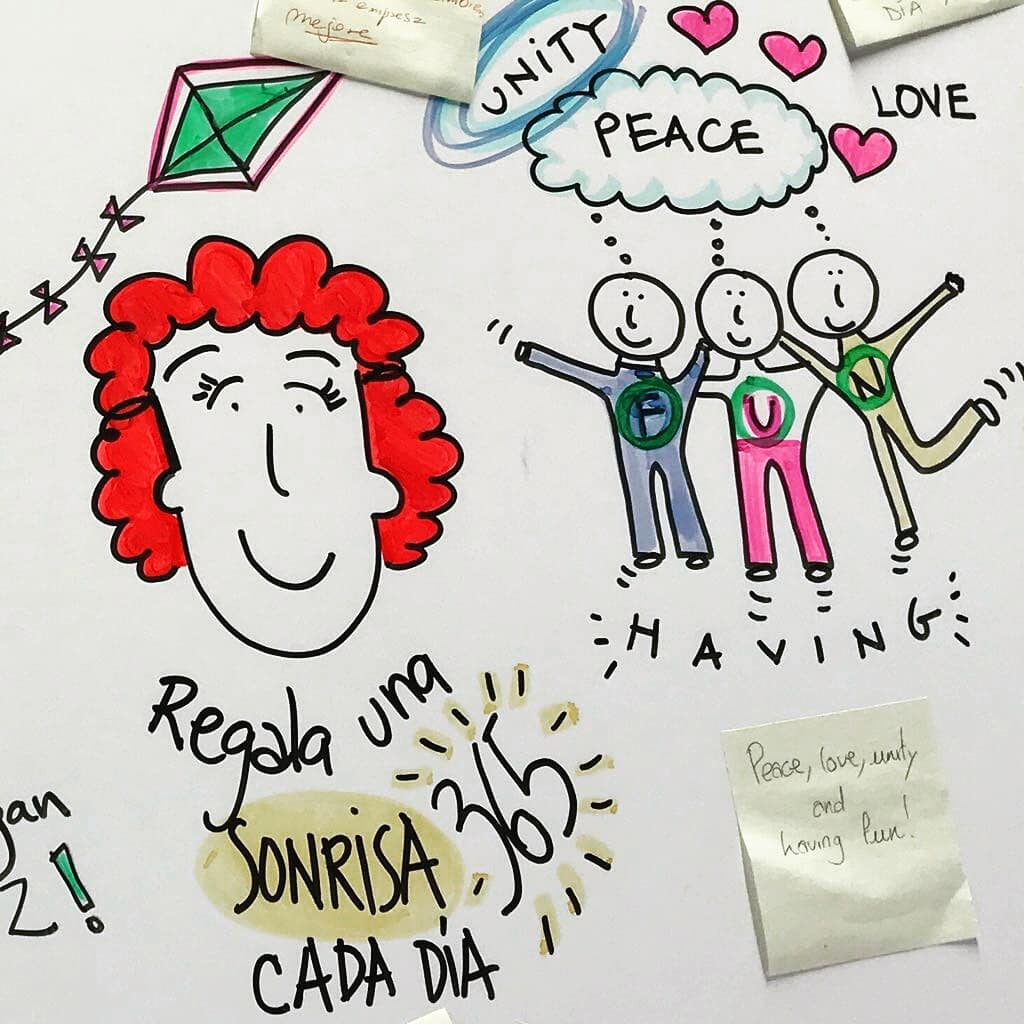 mejore
DÍA
UNITY
PEACE
LOVE
F U N
HAVING
Regala una
SONRISA 365
CADA DÍA
Peace, love, unity
and
having fun!